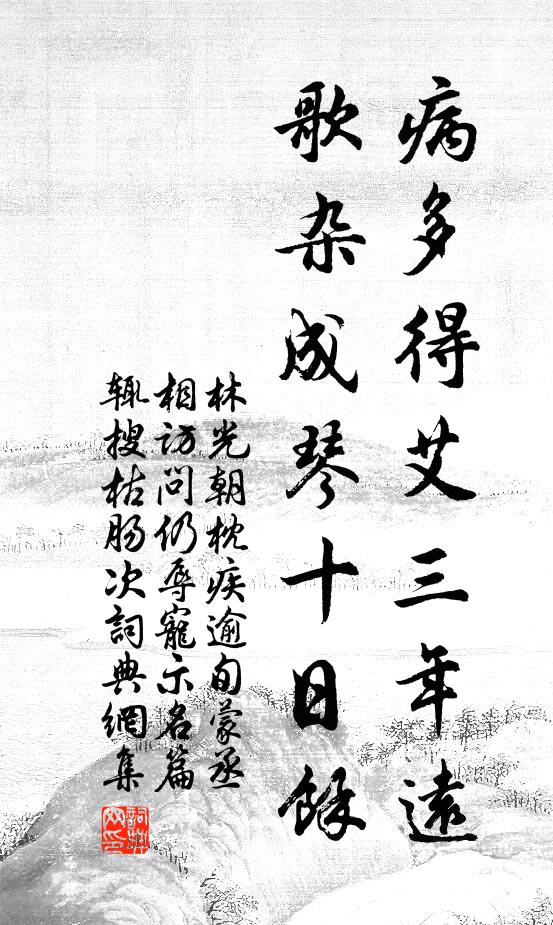 病多得艾三年遠
歌杂成琴十日餘
林光朝枕疾逾旬蒙丞
相访问仍辱寵示名篇
辄搜枯肠次詞典網集